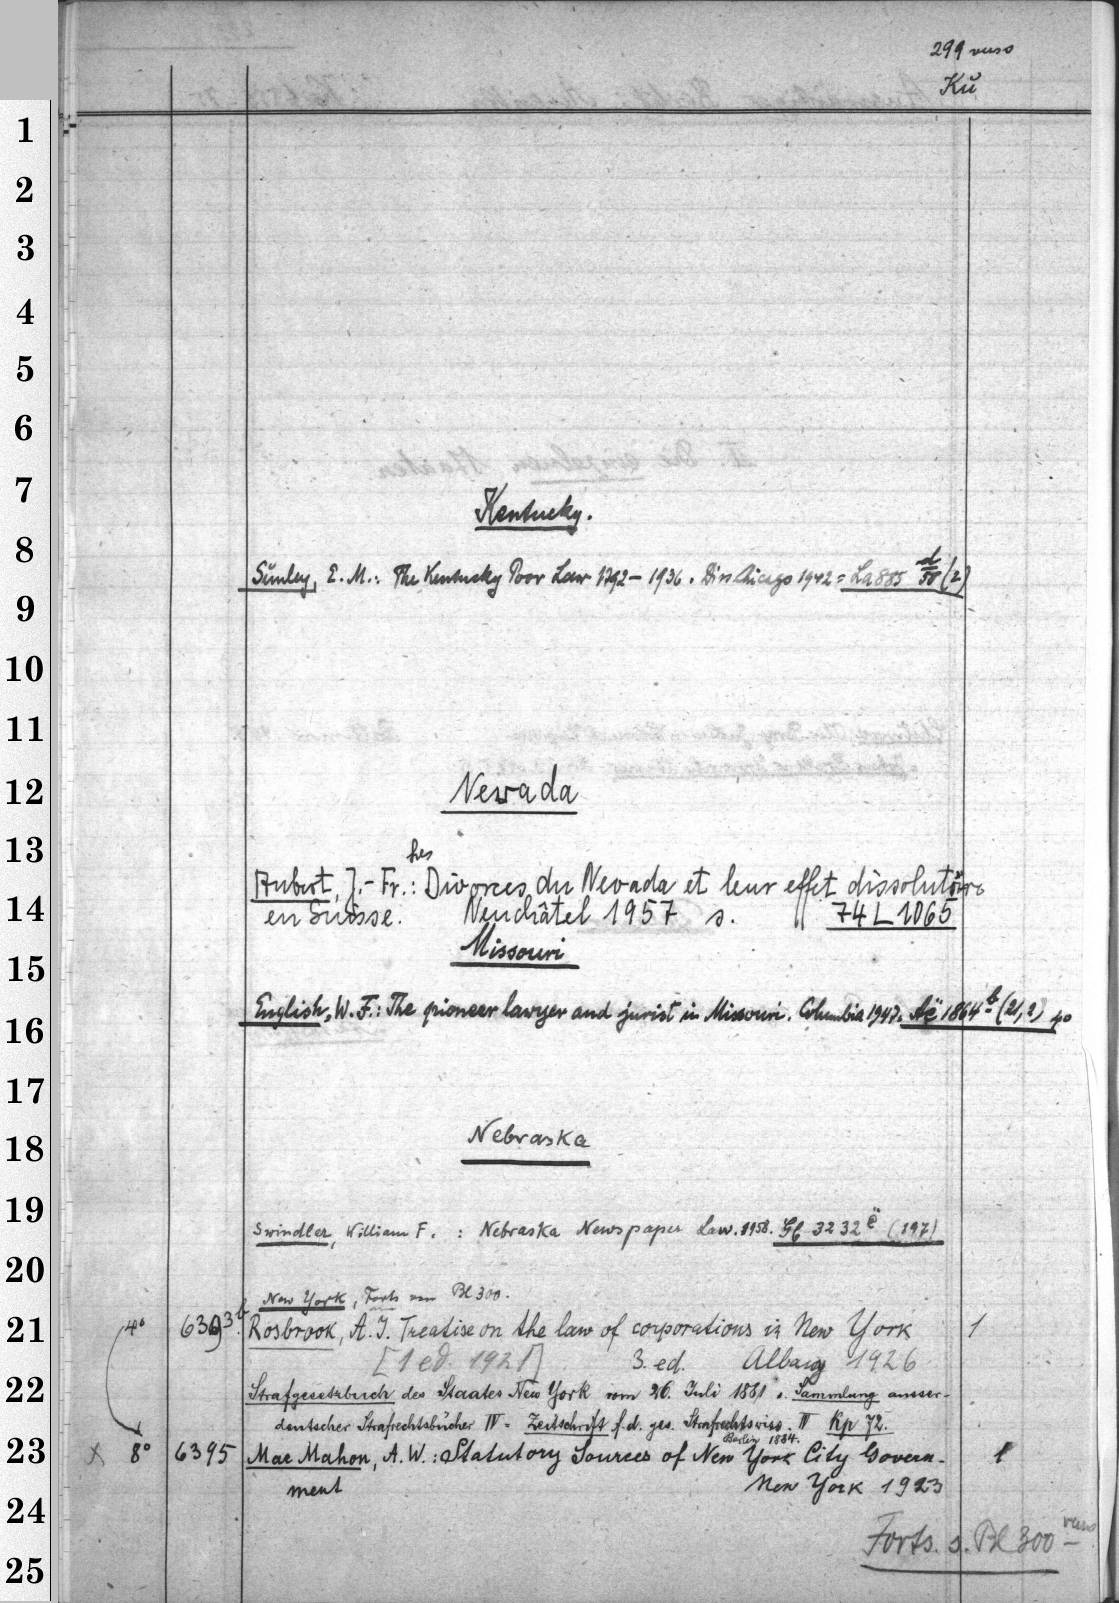 299 verso
Kü
Kentucky.
E. M.: The Kentucky Poor Law 1792–1936. Diss. Chicago 1942 = La 885 d/58 (2)
Nevada
hes
Aubert, J.-Fr.: Divorces du Nevada et leur effet dissolutoire
en Suisse. Neuchâtel 1957 s. 74 L 1065
Missouri
English, W. F.: The pioneer lawyer and jurist in Missouri. Columbia 1947. Aë 1864 b (21,2) 4°
Nebraska
Swindler, William F. : Nebraska Newspaper Law. 1958. 3232 ë (197)
New York, Forts von Bl 300.
4° 6393 b Rosbrook, A. J. Treatise on the law of corporations in New York 1
[1 ed. 1921] 3. ed. Albany 1926
Strafgesetzbuch des Staates New York vom 26. Juli 1881 s. Sammlung ausser-
deutscher Strafrechtsbücher IV = Zeitschrift f. d. ges. Strafrechtswiss. III Kp 72.
Berlin 1884.
x 8° 6395 Mac Mahon, A. W.: Statutory Sources of New York City Govern- 1
ment New York 1923
Forts. s. Bl 300 verso
1
2
3
4
5
6
7
8
9
10
11
12
13
14
15
16
17
18
19
20
21
22
23
24
25